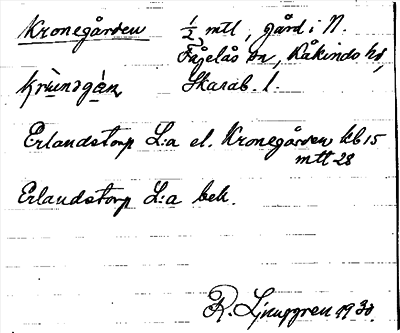 Kronegården 1/2 mtl, gård i N.
Fågelås sn, Kåkinds hd,
krùnogàɳ, Skarab. l.
Erlandstorp L:a el. Kronegården kb 15
mtt 28
Erlandstorp L:a bek.
R. Ljunggren 1930.